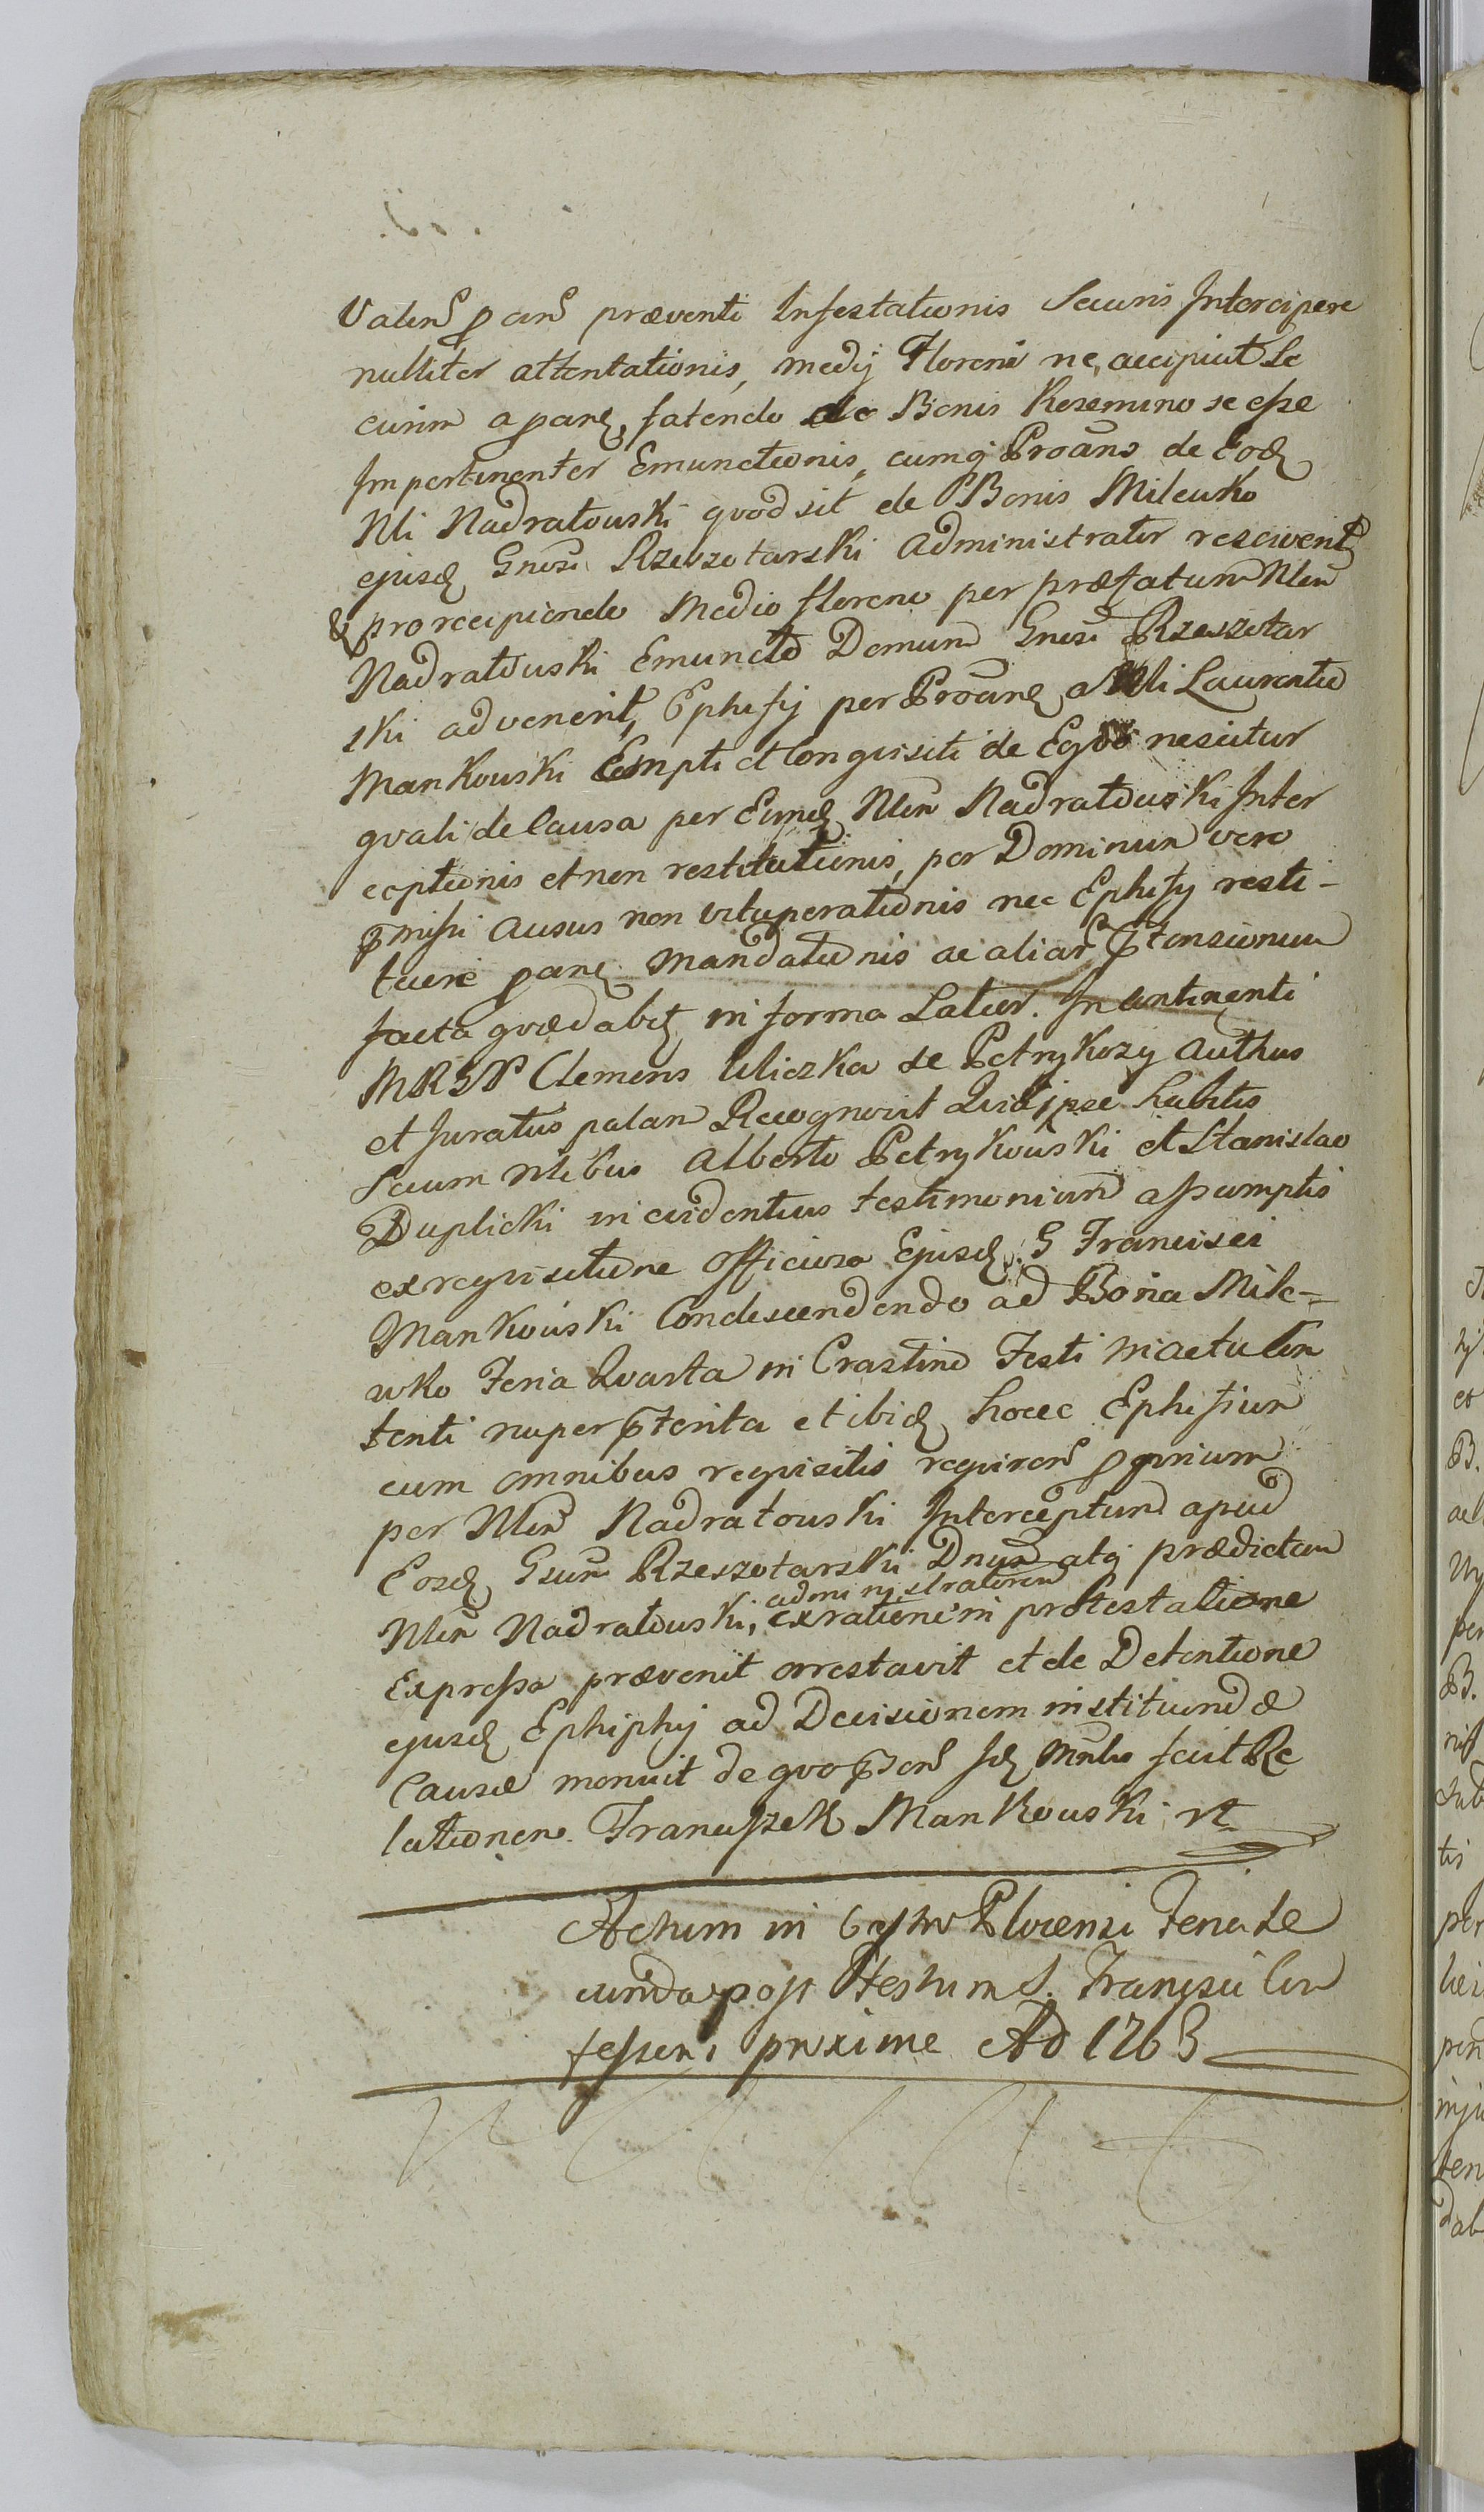 Valen p aen præventi Infestationis Securis Intercipere
nulliter attentationis, medij Floreni ne, accipiat Se
curim a pane, fatendo de Bonis Rzemino se esse
Impertinenter Emunctionis, cumq Proans de Eod
Nli Nadratowski quod sit de Bonis Milewko
ejusd Gnosi Rzeszotarski Administrator resciverit
& pro recipiendo Medio floreno per præfatum Nlem
Nadratowski Emuncto Domum Gnosi Rzeszotar
ski advenerit, Ephipij per Proane a Nli Laurentio
Mankowski Empti et Conquisiti de Equo nescitur
quali de Causa per Eund Nlem Nadratowski Inter
ceptionis et non restitutionis, per Dominum vero
pmissi Ausus non vituperationis nec Ephipij resti-
tuere pane mandationis ac aliar ptensionum
facta quædabit in forma Latior. In Continenti
MRSP Clemens Uliczka de Petrykozy Authus
et Juratus palam Recognovit Quia ipse habitis
Secum Nlibus Alberto Petrykowski et Stanislao
Duplicki in evidentius testimonium assumptis
ex requisitione Officiosa Ejusd G Francisci
Mankowski Condescendendo ad Bona Mile-
wko Feria Quarta in Crastino Festi in actu Con
tenti nuper pterita et ibid hocce Ephipium
cum omnibus requisitis requiren pprium
per Nlem Nadratowski Interceptum apud
Eosd Gsum Rzeszotarski Dnum atq prædictum
administratorem
Nlem Nadratowski, ex ratione in protestatione
Expressa prævenit arrestavit et de Detentione
ejusd Ephiphij ad Decisionem instituendæ
Causæ monuit de quo pSens sd Mnlio fecit Re
lationem. Franciszek Mankowski rt
Actum in Cstro Plocensi Feria Se
cunda post Festum S. Francisci Con
fessoris proxime Ad 1763